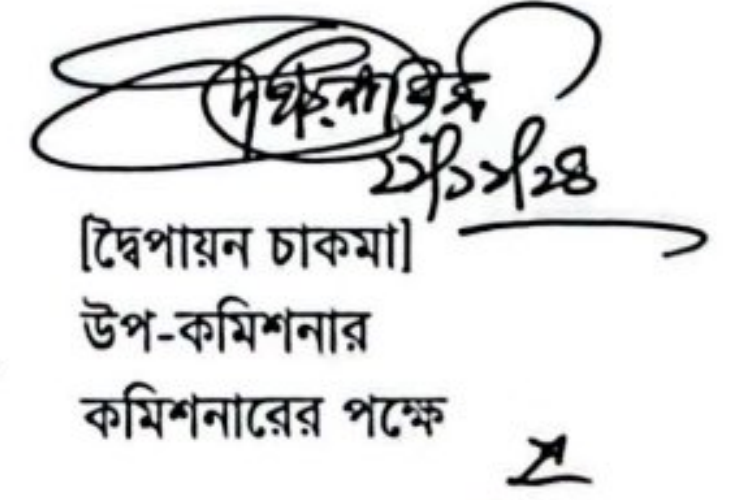 [দ্বৈপায়ন চাকমা]
উপ-কমিশনার
কমিশনারের পক্ষে